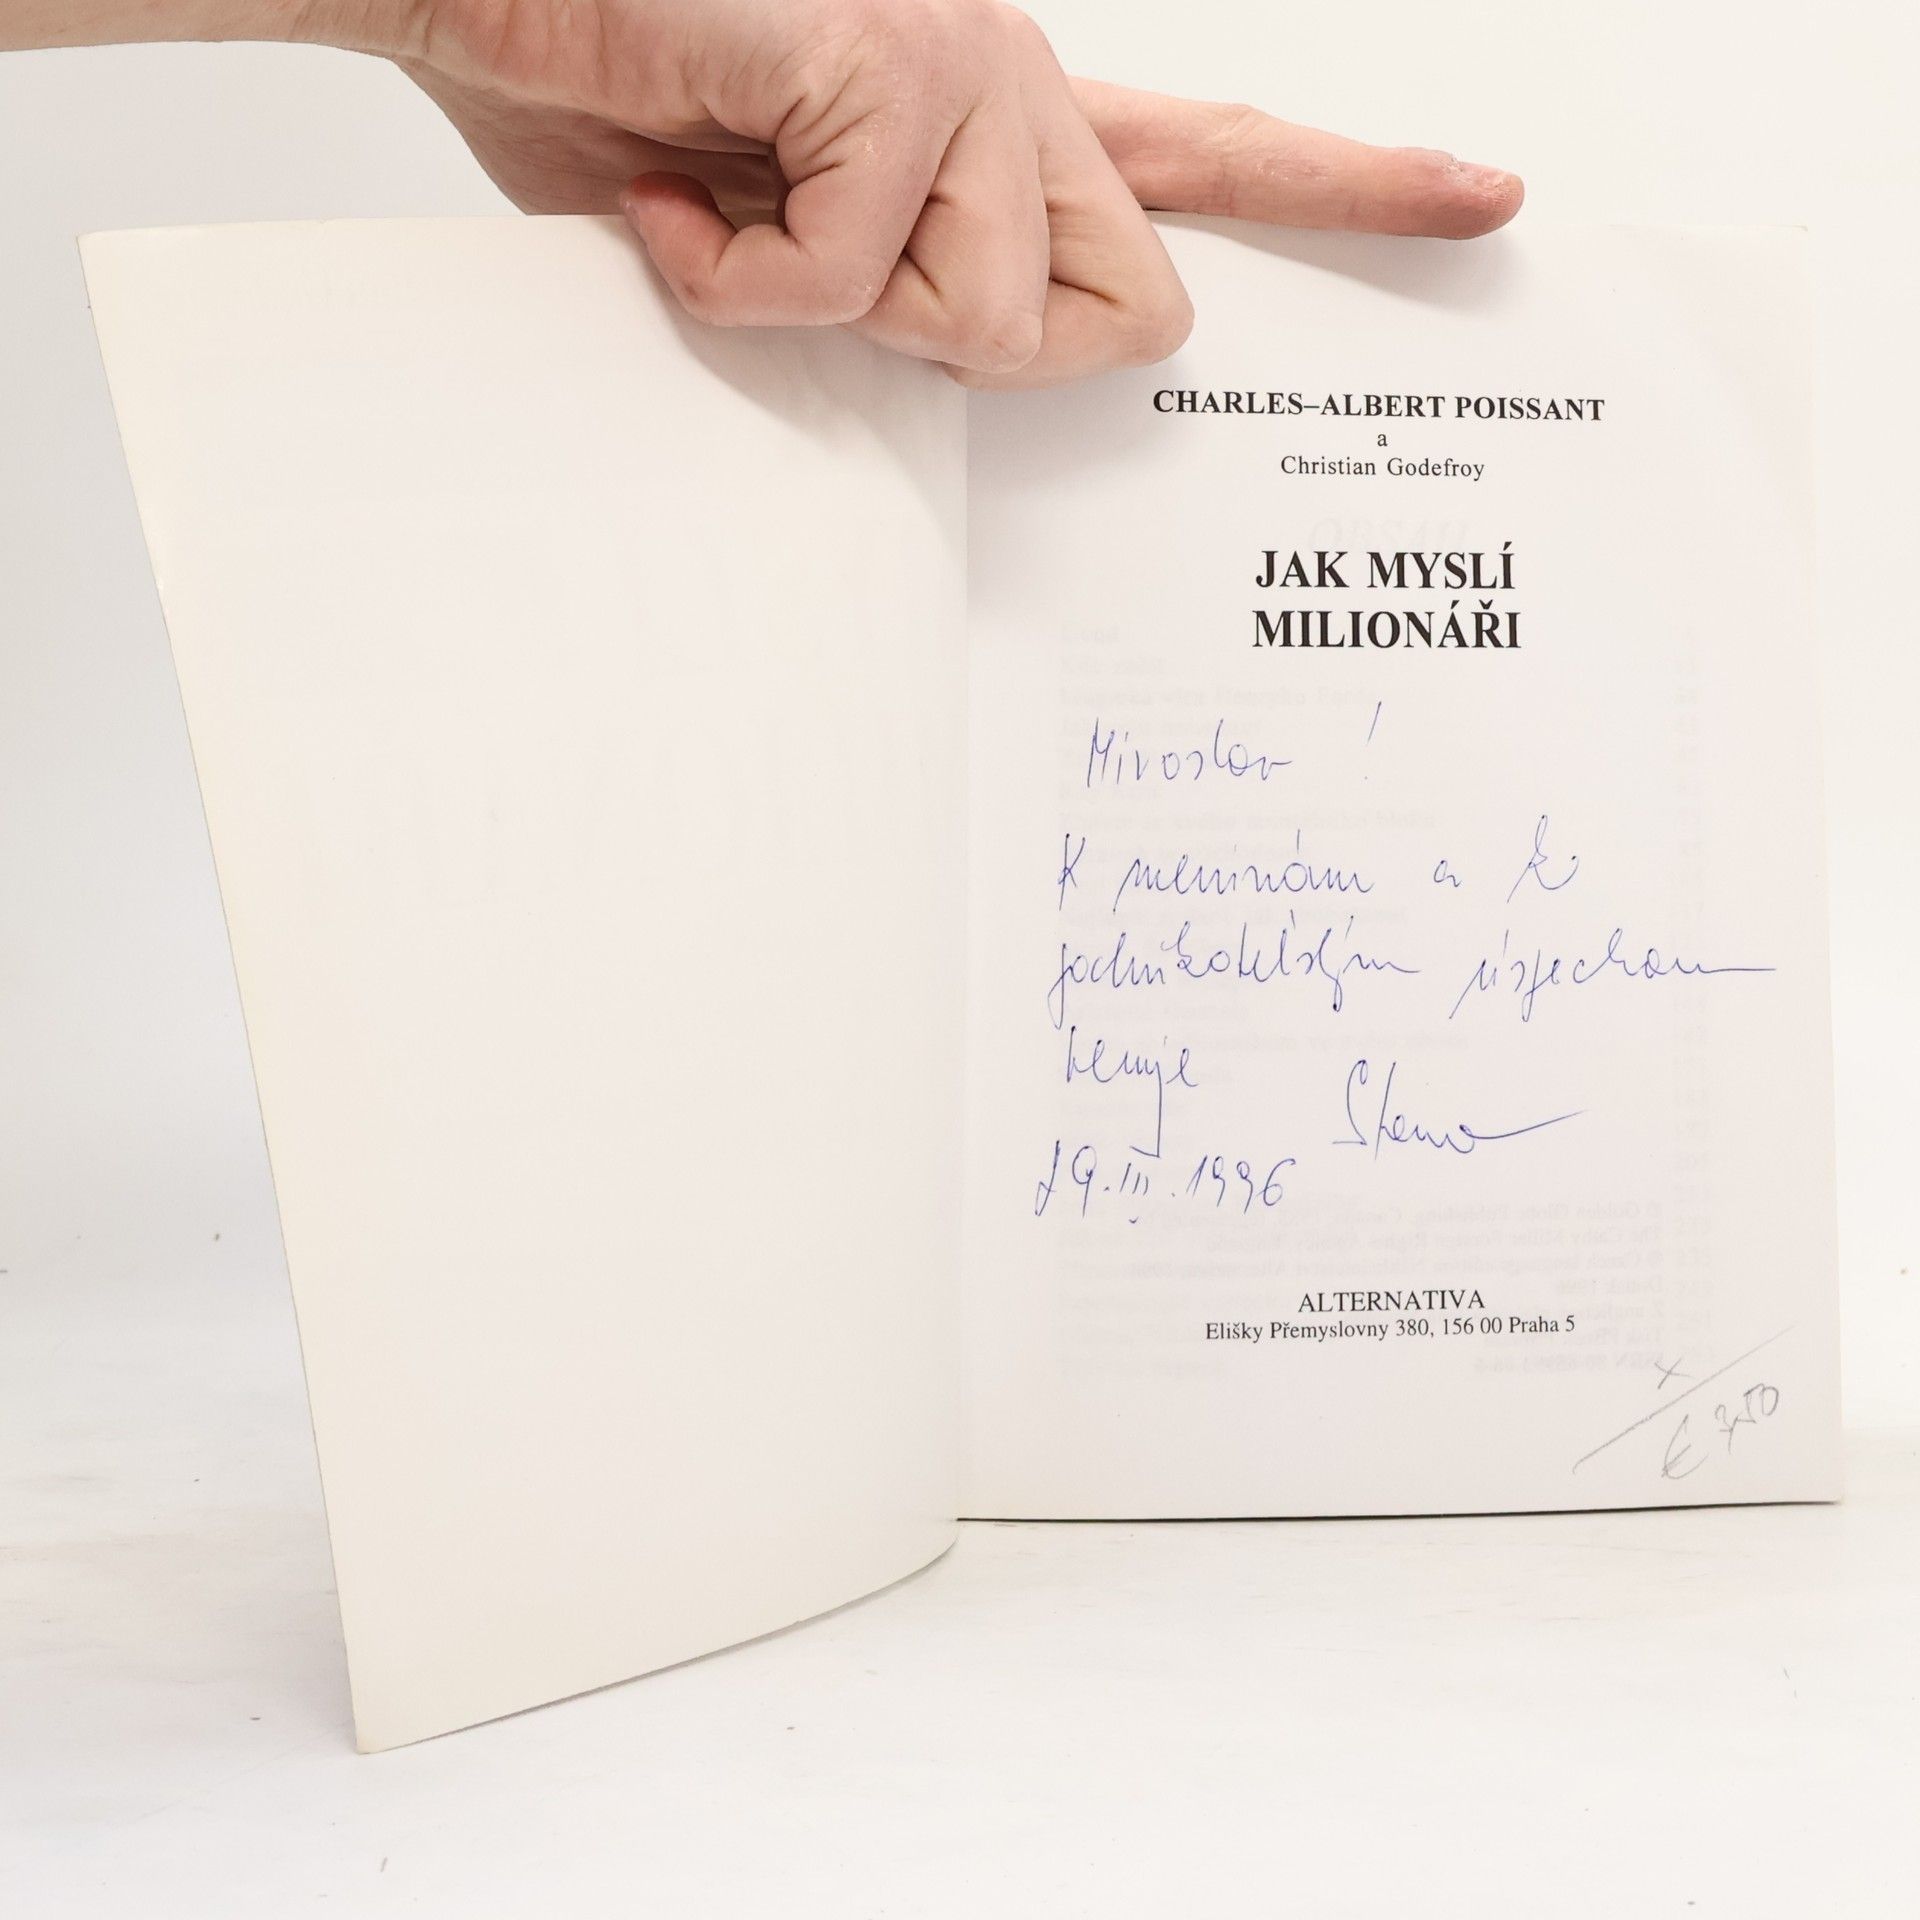 CHARLES–ALBERT POISSANT
a
Christian Godefroy
JAK MYSLÍ
MILIONÁŘI
Miroslav !
K meninám a k
podnikateľským úspechom
venuje
29. III. 1996
ALTERNATIVA
Elišky Přemyslovny 380, 156 00 Praha 5